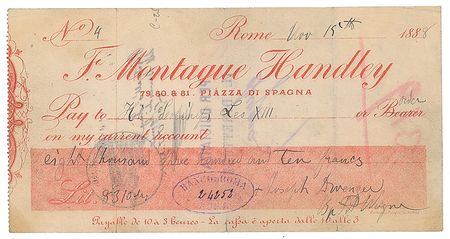 No 4 Rome Nov 15th 1888
F. Montague Handley
79,80 & 81. PIAZZA DI SPAGNA
Pay to His Leo XIII or Bearer
order
on my current account
eight thousand hundred and ten francs
Lit.
BANCO ROMA
24252
Joseph Dwenger
Bp. Ft Wayne
Payable de 10 à 3 heures - La cassa è aperta dalle 10 alle 3